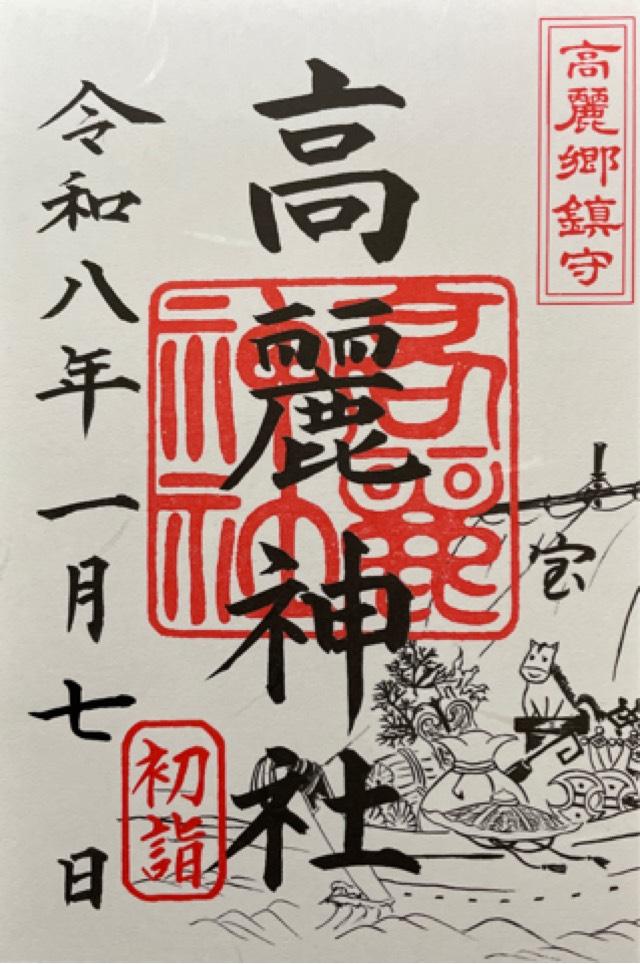 高麗郷鎮守
高麗神社
高麗
神社
宝
令和八年一月七日
初詣